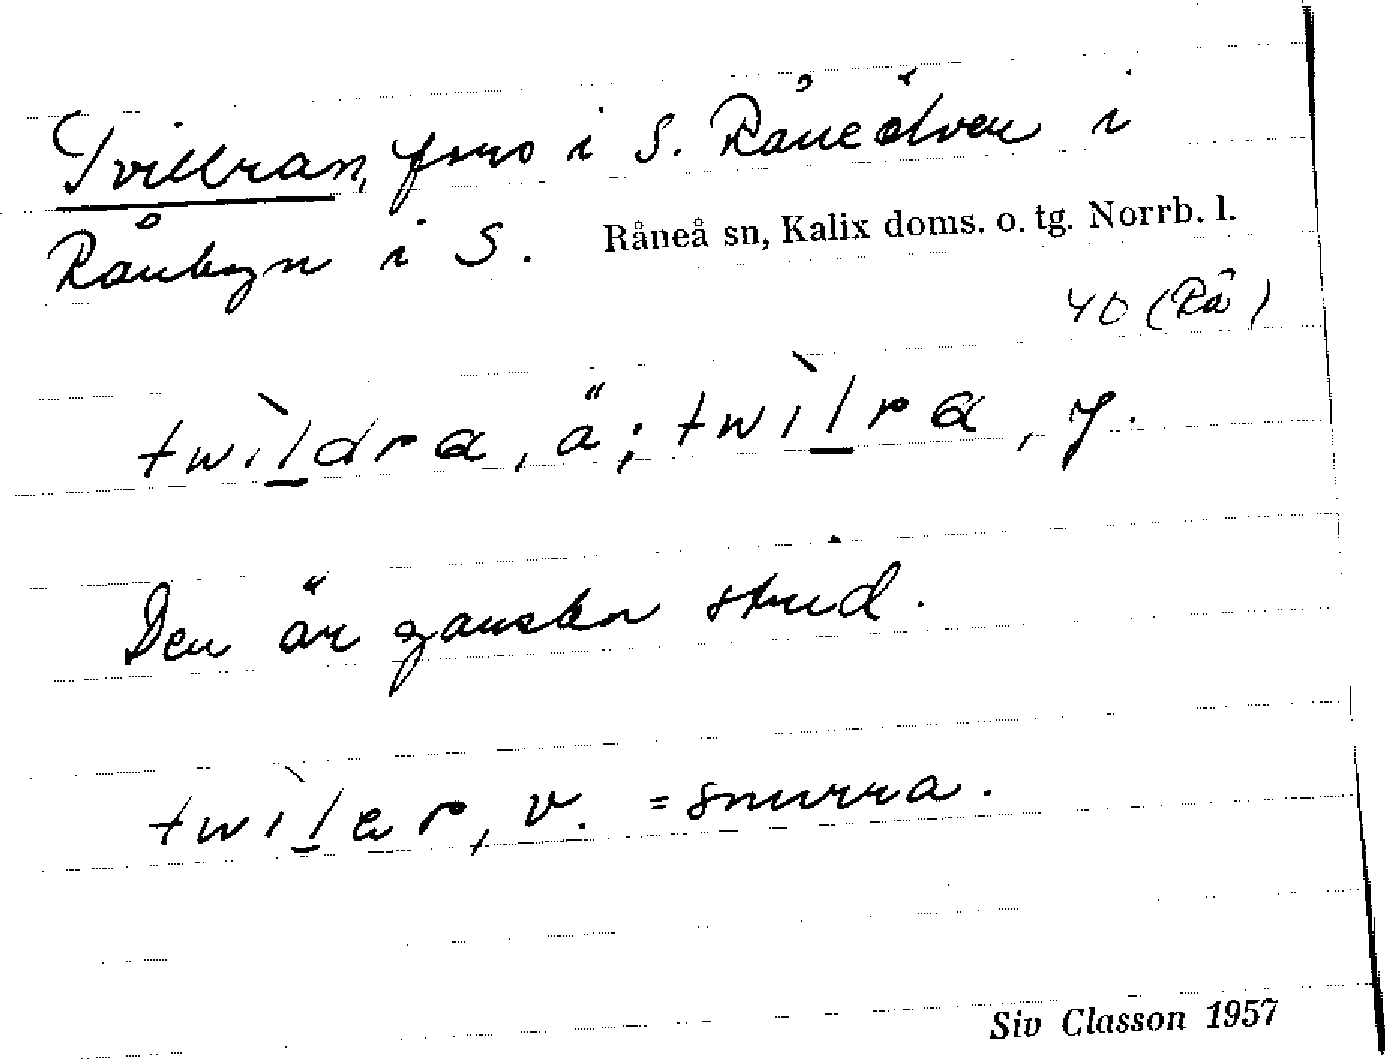 Tvillran, fors i S. Råneälven i
Rånbyn i S. Råneå sn, Kalix doms. o. tg. Norrb. l.
40 (Rå)
twìldra, ä; twìlra, y.
Den är ganska strid.
twìler, v. = snurra.
Siv Classon 1957